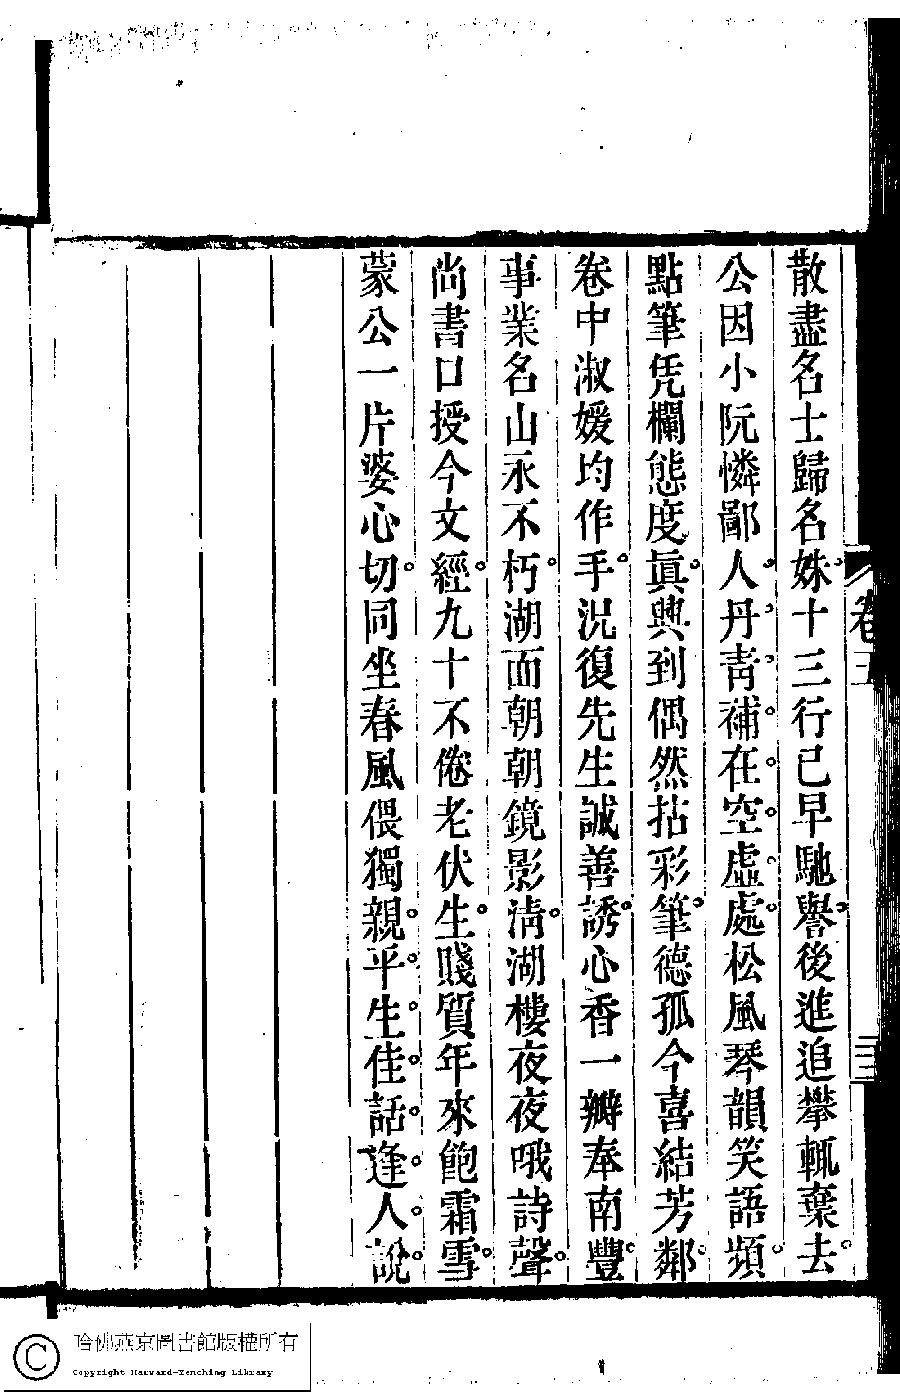 散盡名士歸名姝十三行已早馳譽後進追攀輒棄去
公因小阮憐鄙人丹靑補在空虛處松風琴韻笑語頻
點筆凭欄態度眞興到偶然拈彩筆德孤今喜結芳鄰
卷中淑媛均作手況復先生誠善誘心香一瓣奉南豐
事業名山永不朽湖面朝朝鏡影淸湖樓夜夜哦詩聲
尚書口授今文經九十不倦老伏生賤質年來飽霜雪
蒙公一片婆心切同坐春風偎獨親平生佳話逢人說
卷五
三三
哈佛燕京圖書館版權所有
Copyright Harvard-Yenching Library